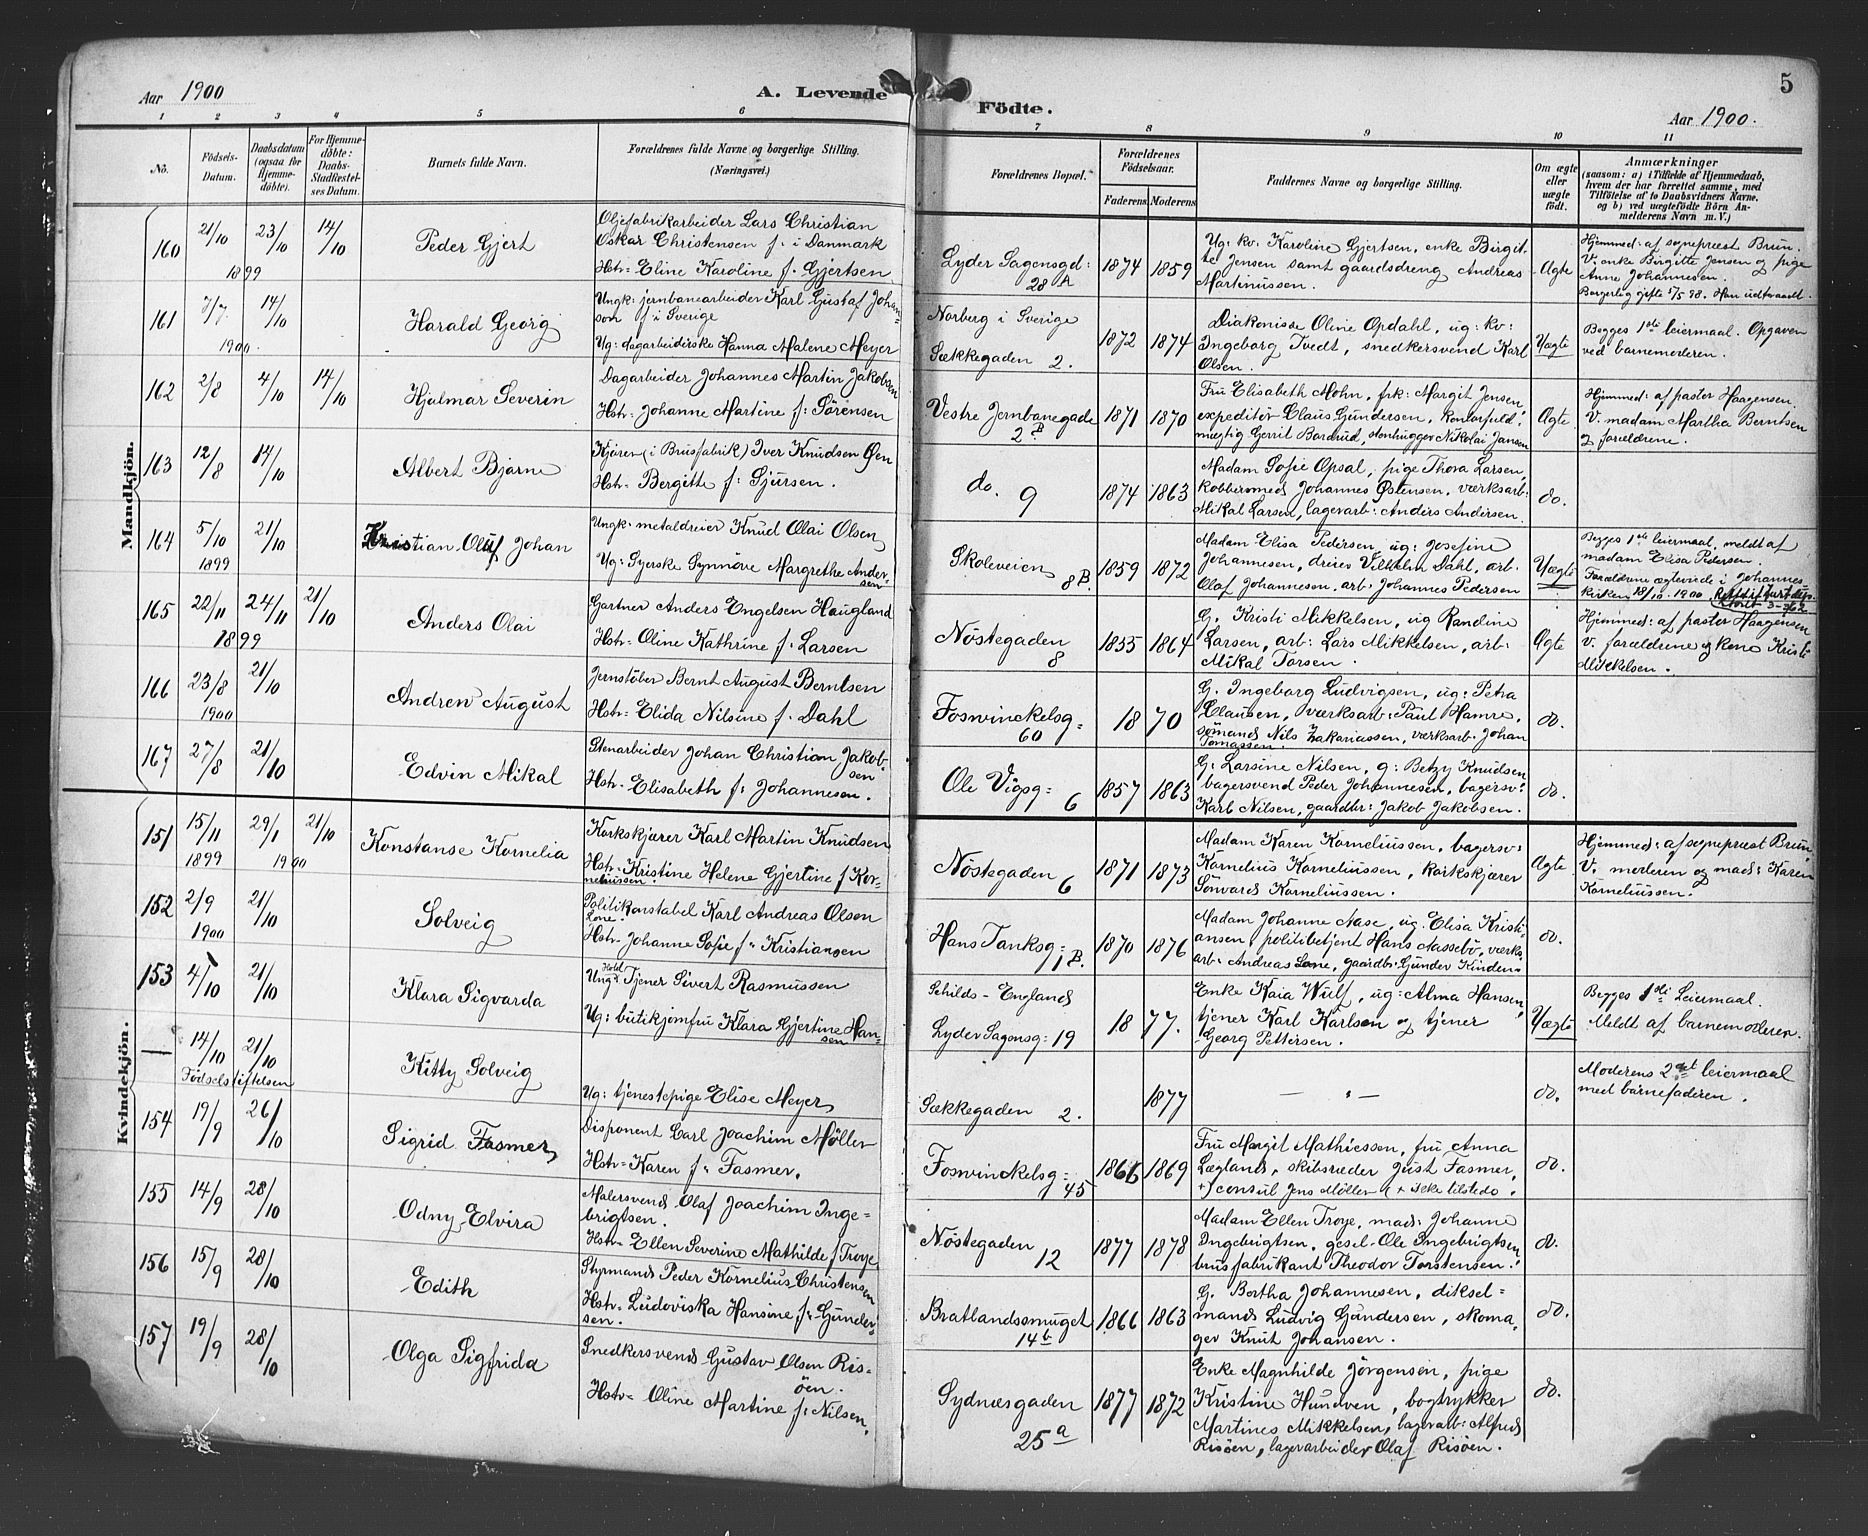 5
Aar 1900
A. Levende Födte.
Aar 1900.
1 2 3 4 5 6 7 8 9 10 11
No.
Födsels-Datum.
Daabsdatum (ogsaa for Hjemmedöbte).
For Hjemmedöbte: Daabs-Stadfæstelses Datum.
Barnets fulde Navn.
Forældrenes fulde Navne og borgerlige Stilling. (Næringsvei.)
Forældrenes Bopæl.
Forældrenes Födselsaar.
Faderens Moderens
Faddernes Navne og borgerlige Stilling.
Om ægte eller uægte födt.
Anmærkninger
(saasom: a) i Tilfælde af Hjemmedaab, hvem der har forrettet samme, med Tilföielse af to Daabsvidners Navne. og b) ved uægtefödte Börn Anmelderens Navn m. V.)
Mandkjön.
160 21/10 1899 23/10 14/10 Peder Gjert
Oljefabrikarbeider Lars Christian
Oskar Christensen f: i Danmark
Hstr= Eline Karoline f. Gjertsen
Lyder Sagensgd: 28 A
1874 1859
Ug: kv. Karoline Gjertsen, enke Birgit-
te Jensen samt gaardsdreng Andreas
Martinussen.
Ægte
Hjemmed: af sognepræst Brun.
V. enke Birgitte Jensen og pige
Anne Johannesen.
Borgerlig gifte 1/5 98. Han udtraadt.
161 7/7 1900. 14/10 Harald Georg
Ungk: jernbanearbeider Karl Gustaf Johan-
son f i Sverige
Ug: dagarbeiderske Hanna Malene Meyer
Norberg i Sverige
Sækkegaden 2.
1872 1874
Diakonisse Oline Opdahl, ug: kv:
Ingeborg Tvedt, snedkersvend Karl
Olsen.
Uægte
Begges 1ste leiermaal. Opgaven
ved barnemoderen.
162 2/8 4/10 14/10 Hjalmar Severin
Dagarbeider Johannes Martin Jakobsen
Hstr= Johanne Martine f: Sørensen
Vestre Jernbanegade 2 B
1871 1870
Fru Elisabeth Mohn, frk: Margit Jensen,
expeditör Claus Gundersen, kontorfuld-
mægtig Gerrit Bordrud, stenhugger Nikolai Jansen
Ægte
Hjemmed: af pastor Haagensen.
V. madam Martha Berntsen
og forældrene.
163 12/8 14/10 Albert Bjarne
Kjører (i Brusfabrik) Iver Knudsen Øen
Hstr= Bergitte f: Sjursen.
do. 9
1874 1863
Madam Sofie Opsal, pige Thora Larsen,
kobbersmed Johannes Østensen, værksarb:
Mikal Larsen, lagerarb: Anders Andersen.
do.
164 5/10 1899 21/10 Kristian Oluf Johan
Ungk: metaldreier Knud Olai Olsen
Ug: Syerske Synnöve Margrethe Ander-
sen
Skoleveien 8 B.
1859 1872
Madam Elisa Pedersen, ug: Josefine
Johannesen, dreier Vilhelm Dahl, arb.
Olaf Johannesen, arb: Johannes Pedersen
Uægte
Begges 1ste leiermaal, meldt af
madam Elisa Pedersen.
Forældrene ægteviede i Johannes-
kirken 18/10 1900.
165 22/11 1899 24/11 21/10 Anders Olai
Gartner Anders Engelsen Haugland
Hstr= Oline Kathrine f: Larsen
Nöstegaden 8
1855 1864
G. Kristi Mikkelsen, ug Randine
Larsen, arb: Lars Mikkelsen, arb:
Mikal Torsen.
Ægte
Hjemmed: af pastor Haagensen
V. forældrene og kone Kristi
Mikkelsen.
166 23/8 1900 21/10 Andren August
Jernstöber Bernt August Berntsen
Hstr= Elida Nilsine f. Dahl
Foswinckelsg= 60
1870
G. Ingeborg Ludvigsen, ug: Petra
Clausen, værksarb: Paul Hamre,
sömand Nils Zakariassen, værksarb. Johan
Tomassen.
do.
167 27/8 21/10 Edvin Mikal
Stenarbeider Johan Christian Jakob-
sen
Hstr= Elisabeth f: Johannesen.
Ole Vigsg= 6
1857 1863
G: Larsine Nilsen, g: Betzy Knudsen
bagersvend Peder Johannesen, bagersv:
Karl Nilsen, gaardbr: Jakob Jakobsen.
do.
Kvindekjön.
151 15/11 1899 29/1 1900 21/10 Konstanse Kornelia
Korkskjærer Karl Martin Knudsen
Hstr= Kristine Helene Gjertine f Kor-
neliussen.
Nöstegaden 6
1871 1873
Madam Karen Korneliussen, bagersv:
Kornelius Korneliussen, korkskjærer
Sönvard Korneliussen.
Ægte
Hjemmed: af sognepræst Brun,
V. moderen og mad: Karen
Korneliussen.
152 2/9 1900 21/10 Solveig
Politikonstabel Karl Andreas Olsen
Lone.
Hstr= Johanne Sofie f: Kristiansen
Hans Tanksg= 1 B.
1870 1876
Madam Johanne Aase, ug. Elisa Kristi-
ansen, politibetjent Hans Aassebö, værks-
arb: Andreas Lone, gaardb: Gunder Kinden.
do.
153 4/10 21/10 Klara Sigvarda
Ungk: Hotel Tjener Sivert Rasmussen
Ug: butikjomfru Klara Gjertine Han-
sen
Schilds - England
Lyder Sagensg: 19
1877.
Enke Kaia Wulf, ug: Alma Hansen,
tjener Karl Karlsen og tjener
Georg Pettersen.
Uægte
Begges 1ste Leiermaal.
Meldt af barnemoderen.
— 14/10 21/10 Kitty Solveig
Födselsstiftelsen
Ug: tjenestepige Elise Meyer
Sækkegaden 2.
1877
— " —
do.
Moderens 2det leiermaal
med barnefaderen.
154 19/9 26/10 Sigrid Fasmer
Disponent Carl Joachim Möller
Hstr= Karen f: Fasmer.
Foswinckelsg= 45
1866 1869
Fru Margit Mathiessen, fru Anna
Lægland, skibsreder Just Fasmer,
+) consul Jens Möller (+ ikke tilstede.
do.
155 14/9 28/10 Odny Elvira
Malersvend Olaf Joachim Inge-
brigtsen.
Hstr= Ellen Severine Mathilde f Troye
Nöstegaden 12
1877 1878
Madam Ellen Troye, mad: Johanne
Ingebrigtsen, gesel Ole Ingebrigtsen,
brusfabrikant Theodor Torstensen.
do.
156 15/9 28/10 Edith
Styrmand Peder Kornelius Christensen
Hstr= Ludoviska Hansine f: Gunder-
sen.
Bratlandssmuget 14 b
1866 1863
G. Bertha Johannesen, diksel-
mand Ludvig Gundersen, skoma-
ger Knut Johansen.
do.
157 19/9 28/10 Olga Sigfrida
Snedkersvend Gustav Olsen Ris-
öen.
Hstr= Oline Martine f: Nilsen.
Sydnæsgaden 25 a
1877 1872
Enke Magnhilde Jörgensen, pige
Kristine Hundven, bogtrykker
Martines Mikkelsen, lagerarb: Alfred
Risöen, lagerarbeider Olaf Risöen.
do.